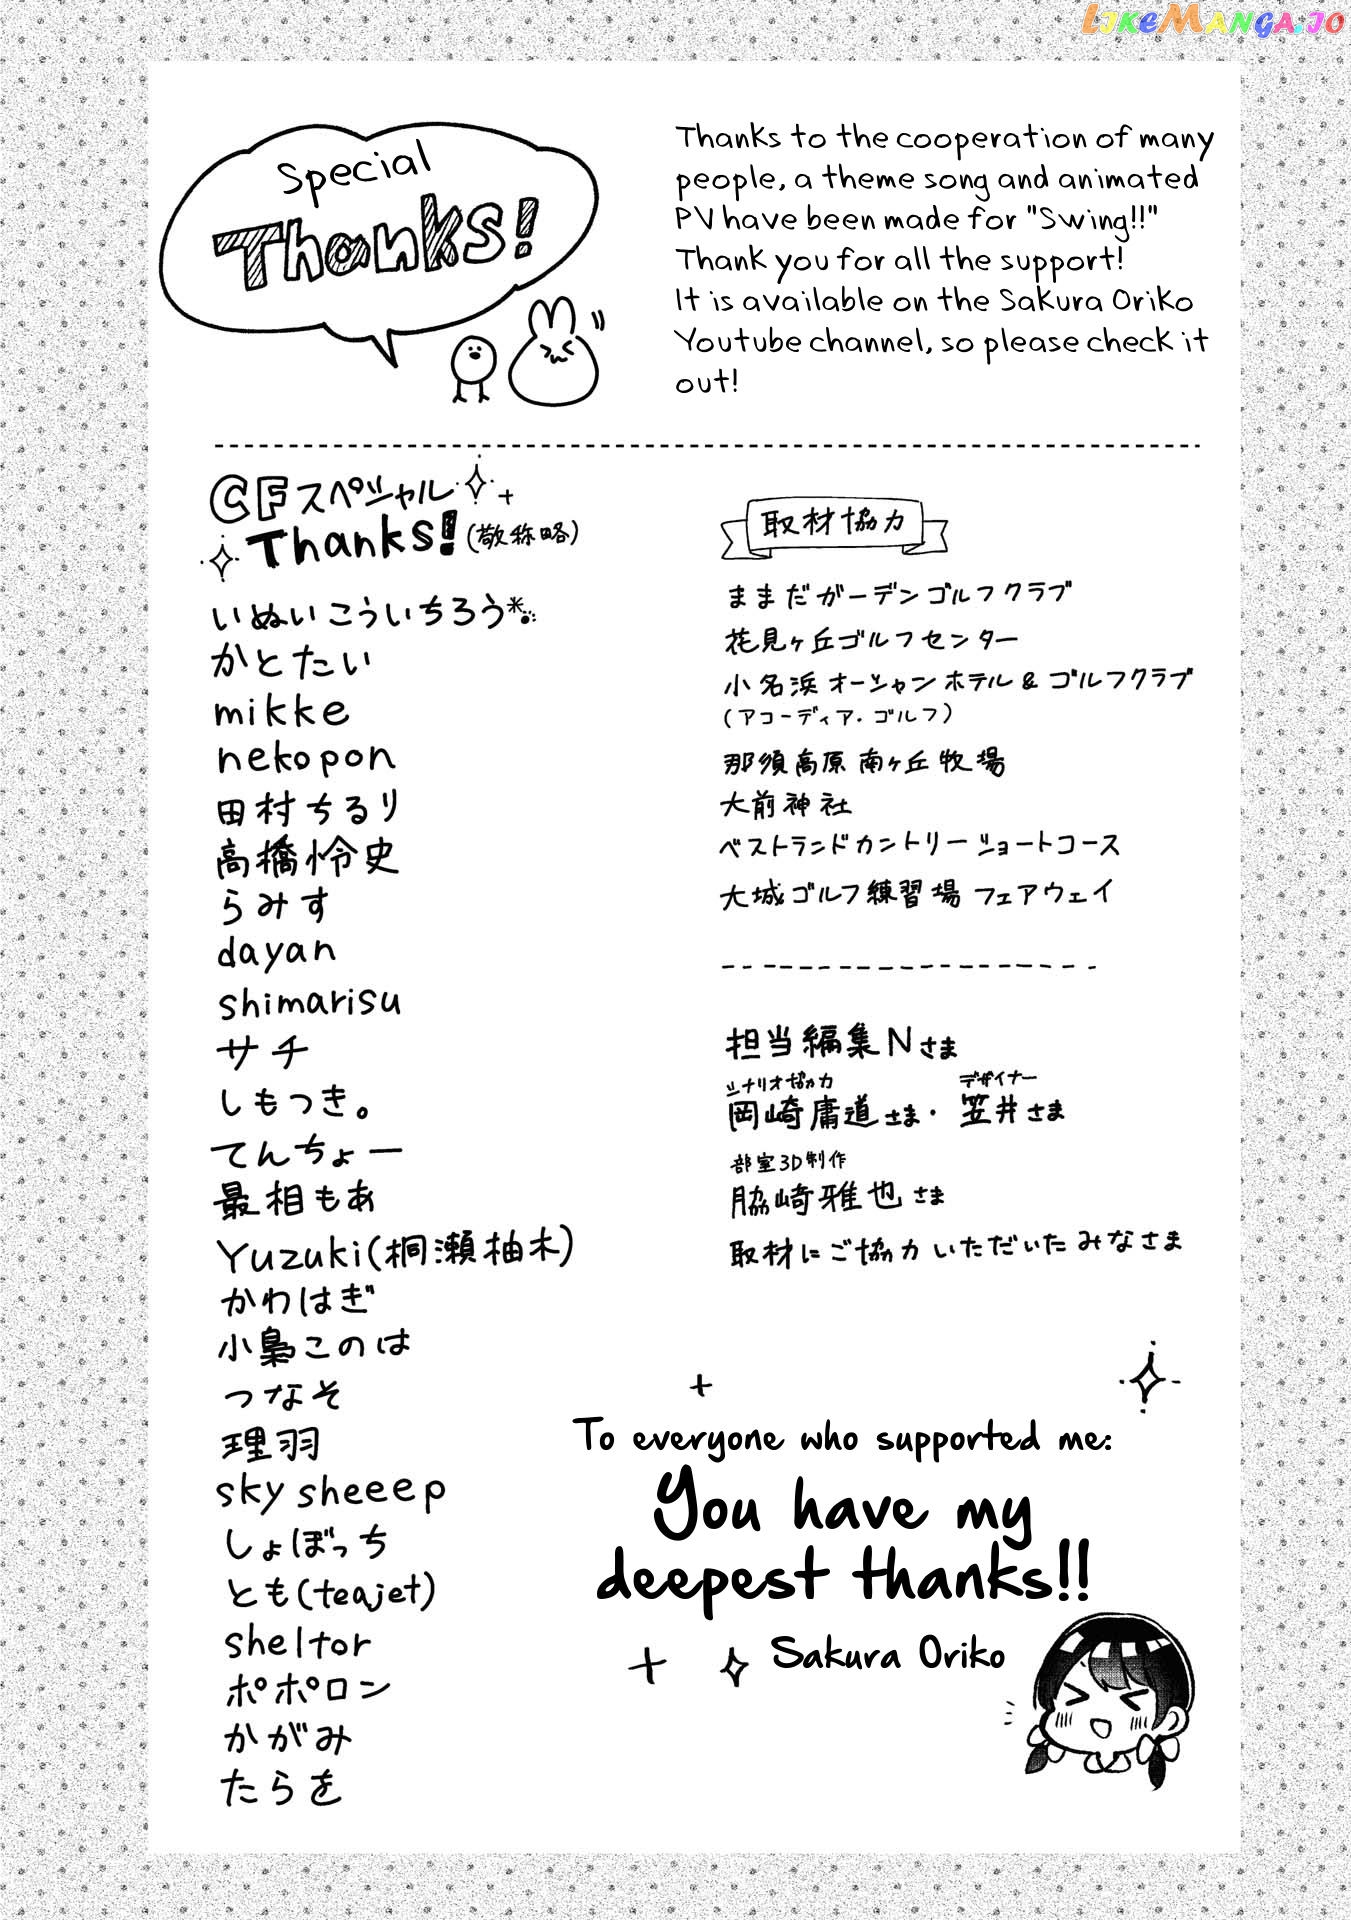 LIKEMANGA.IO
Special
Thanks!
Thanks to the cooperation of many
people, a theme song and animated
PV have been made for "Swing!!"
Thank you for all the support!
It is available on the Sakura Oriko
Youtube channel, so please check it
out!
CFスペシャル
Thanks!(敬称略)
いぬいこういちろう
かとたい
mikke
nekopon
田村ちるり
高橋怜史
らみす
dayan
shimarisu
サチ
しもつき。
てんちょー
最相もあ
Yuzuki(桐瀬柚木)
かわはぎ
小梟このは
つなそ
理羽
sky sheeep
しょぼっち
とも(teajet)
sheltor
ポポロン
かがみ
たらを
取材協力
ままだガーデンゴルフクラブ
花見ヶ丘ゴルフセンター
小名浜オーシャンホテル&ゴルフクラブ
(アコーディア・ゴルフ)
那須高原南ヶ丘牧場
大前神社
ベストランドカントリーショートコース
大城ゴルフ練習場 フェアウェイ
担当編集Nさま
シナリオ協力 デザイナー
岡崎庸道さま・笠井さま
部室3D制作
脇崎雅也さま
取材にご協力いただいたみなさま
To everyone who supported me:
You have my
deepest thanks!!
Sakura Oriko